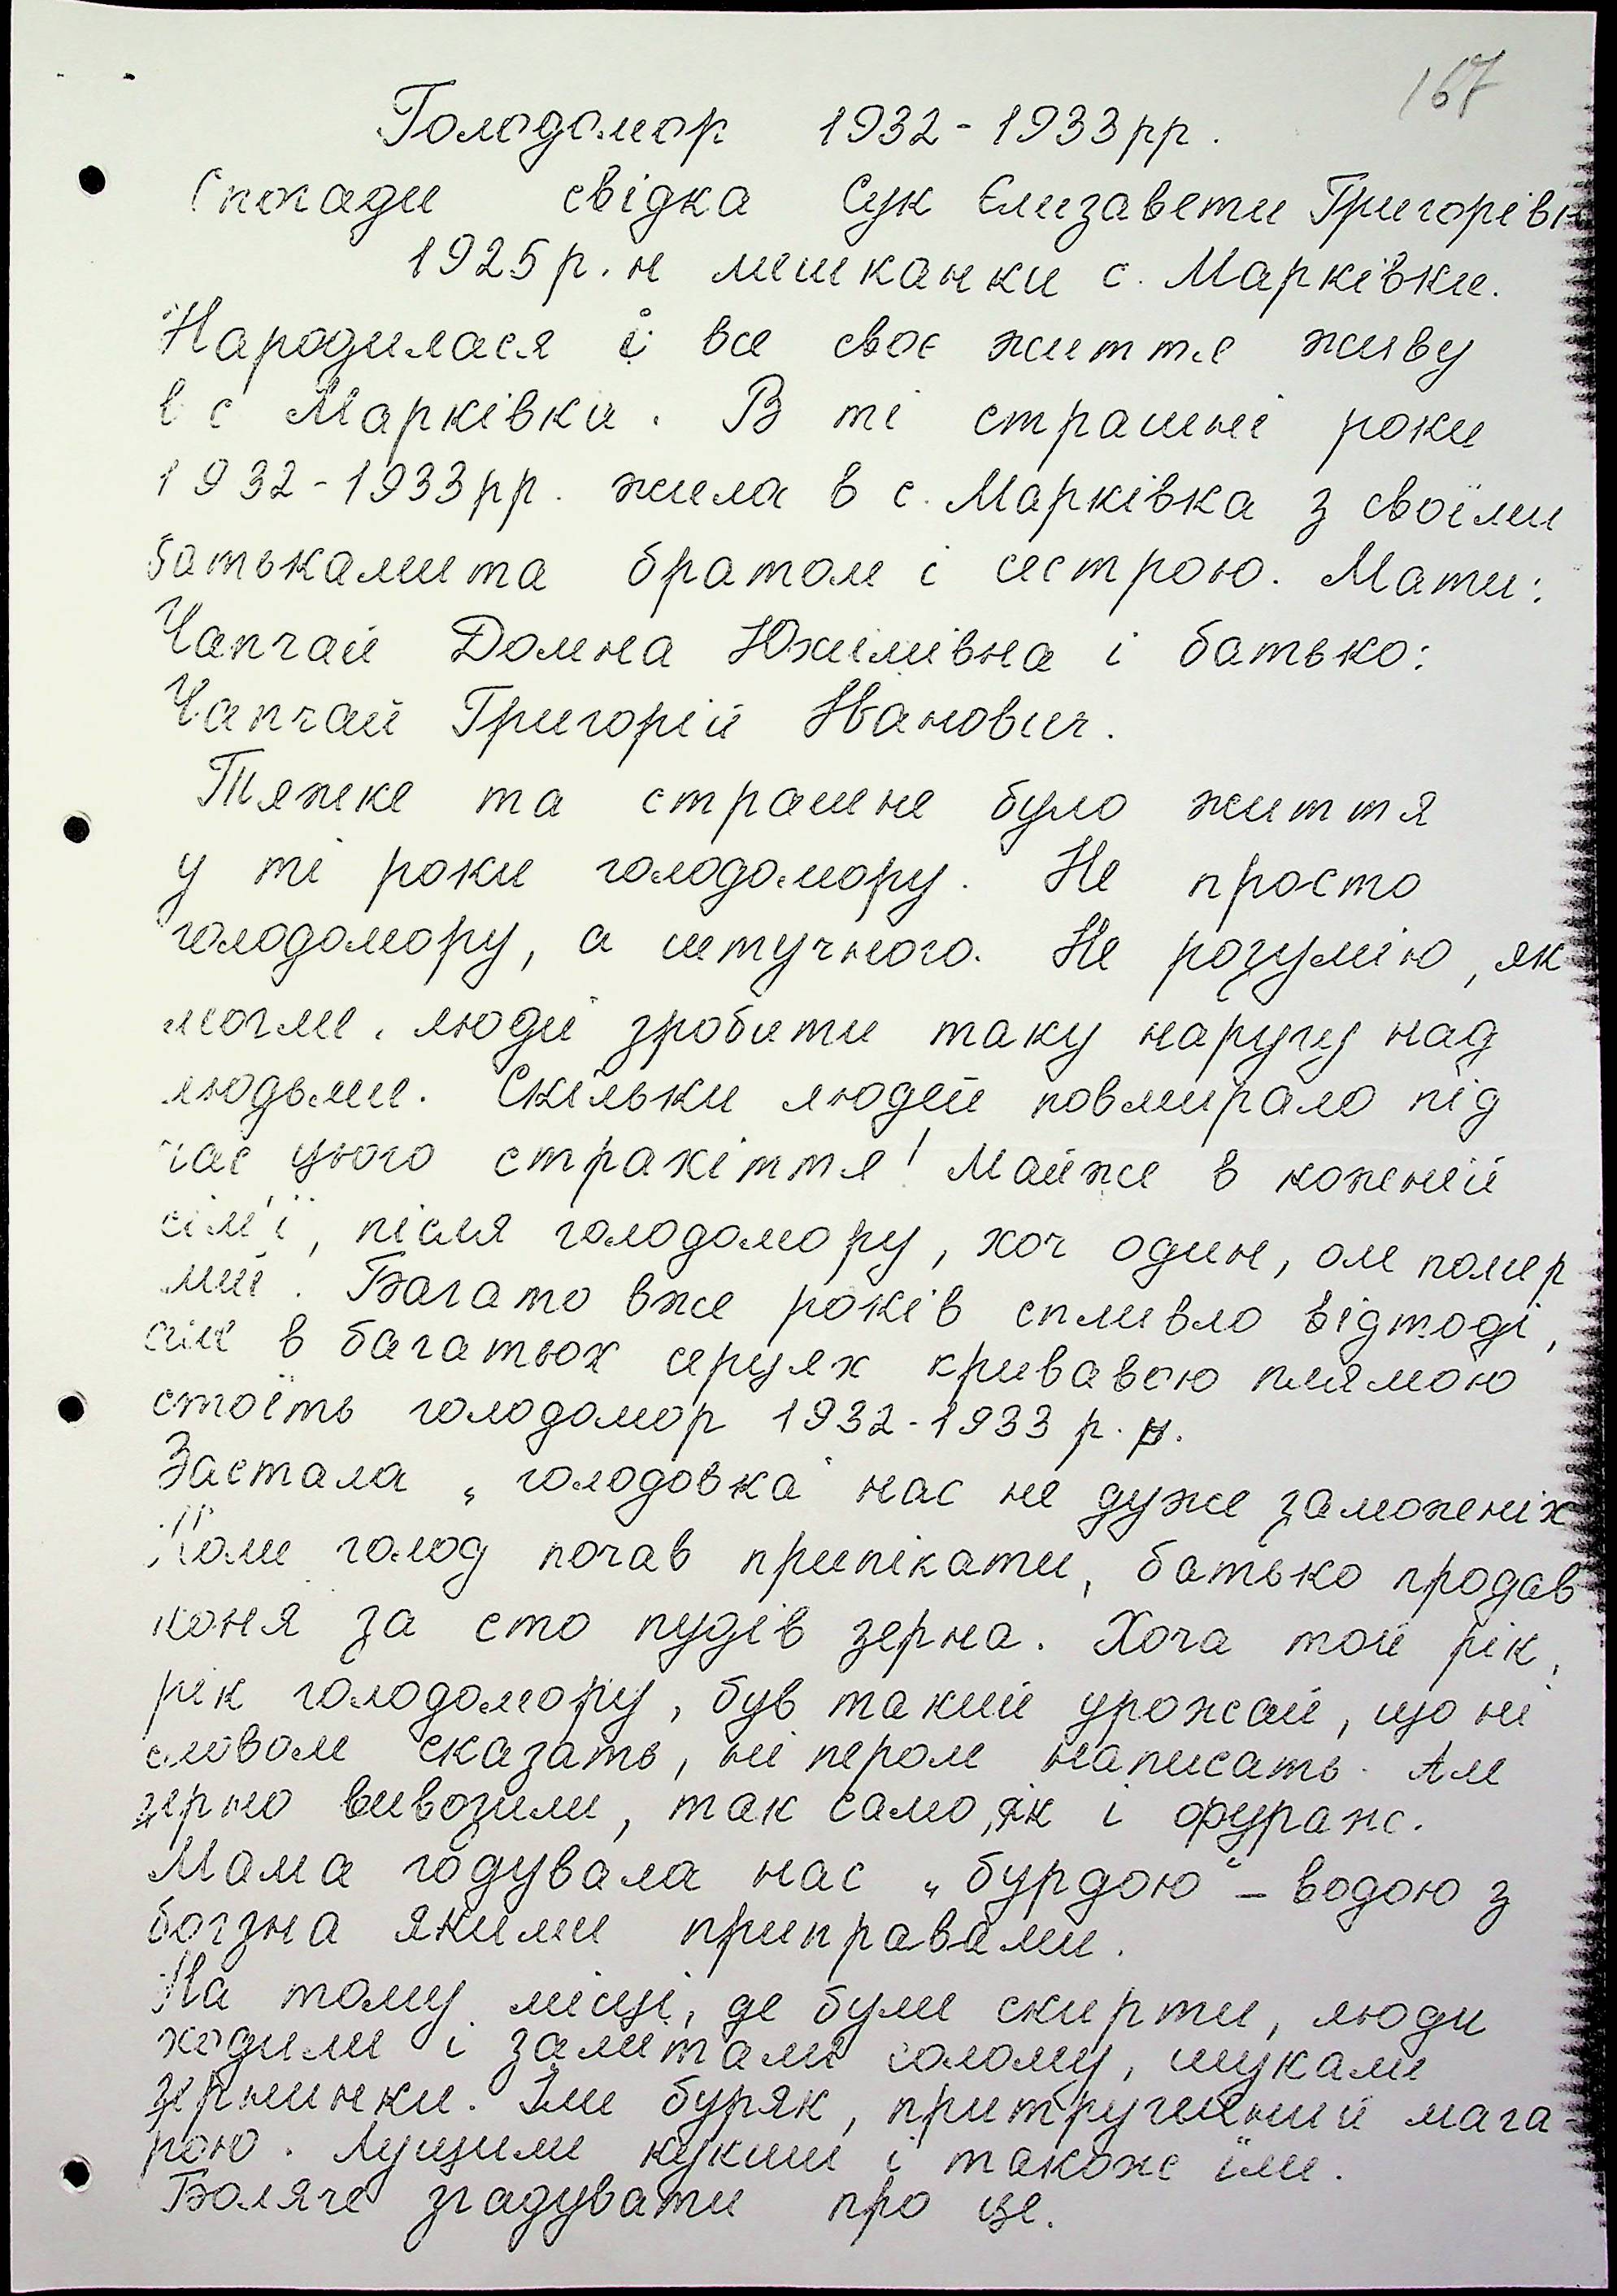 167
Голодомор 1932-1933рр.
Спогади свідка Сук Єлизавети Григорівн
1925р.н мешканки с. Марківки.
Народилася і все своє життя живу
в с Марківки. В ті страшні роки
1932-1933рр. жила в с. Марківка з своїми
батьками та братом і сестрою. Мати:
Чапчай Домна Юхимівна і батько:
Чапчай Григорій Іванович.
Тяжке та страшне було життя
у ті роки голодомору. Не просто
голодомору, а штучного. Не розумію, як
могли люди зробити таку наругу над
людьми. Скільки людей повмирало під
час цього страхіття! Майже в кожній
сім'ї, після голодомору, хоч один, але помер
лий. Багато вже років спливло відтоді,
але в багатьох серцях кривавою плямою
стоїть голодомор 1932-1933 р.р.
Застала „голодовка" нас не дуже заможніх
Коли голод почав припікати, батько продав
коня за сто пудів зерна. Хоча той рік,
рік голодомору, був такий урожай, що ні
словом сказать, ні пером написать. Але
зерно вивозили, так само, як і фураж.
Мама годувала нас „бурдою" – водою з
богзна якими приправами.
На тому місці, де були скирти, люди
ходили і замітали солому, шукали
зернинки. Їли буряк, притручений мага-
рою. Лущили кукіль і також їли.
Боляче згадувати про це.